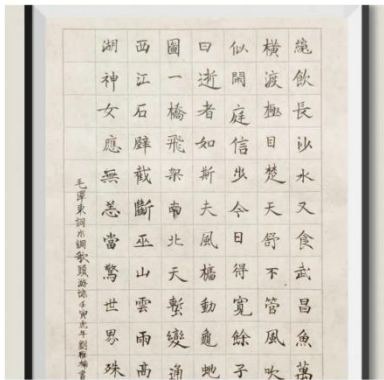 纔飲長沙水又食武昌魚萬
橫渡極目楚天舒不管風吹
似閒庭信步今日得寬餘子
曰逝者如斯夫風檣動龜蛇
圖一橋飛架南北天塹變通
西江石壁截斷巫山雲雨高
湖神女應無恙當驚世界殊
毛澤東詞水調歌頭游泳壬寅虎年劉雅楠書